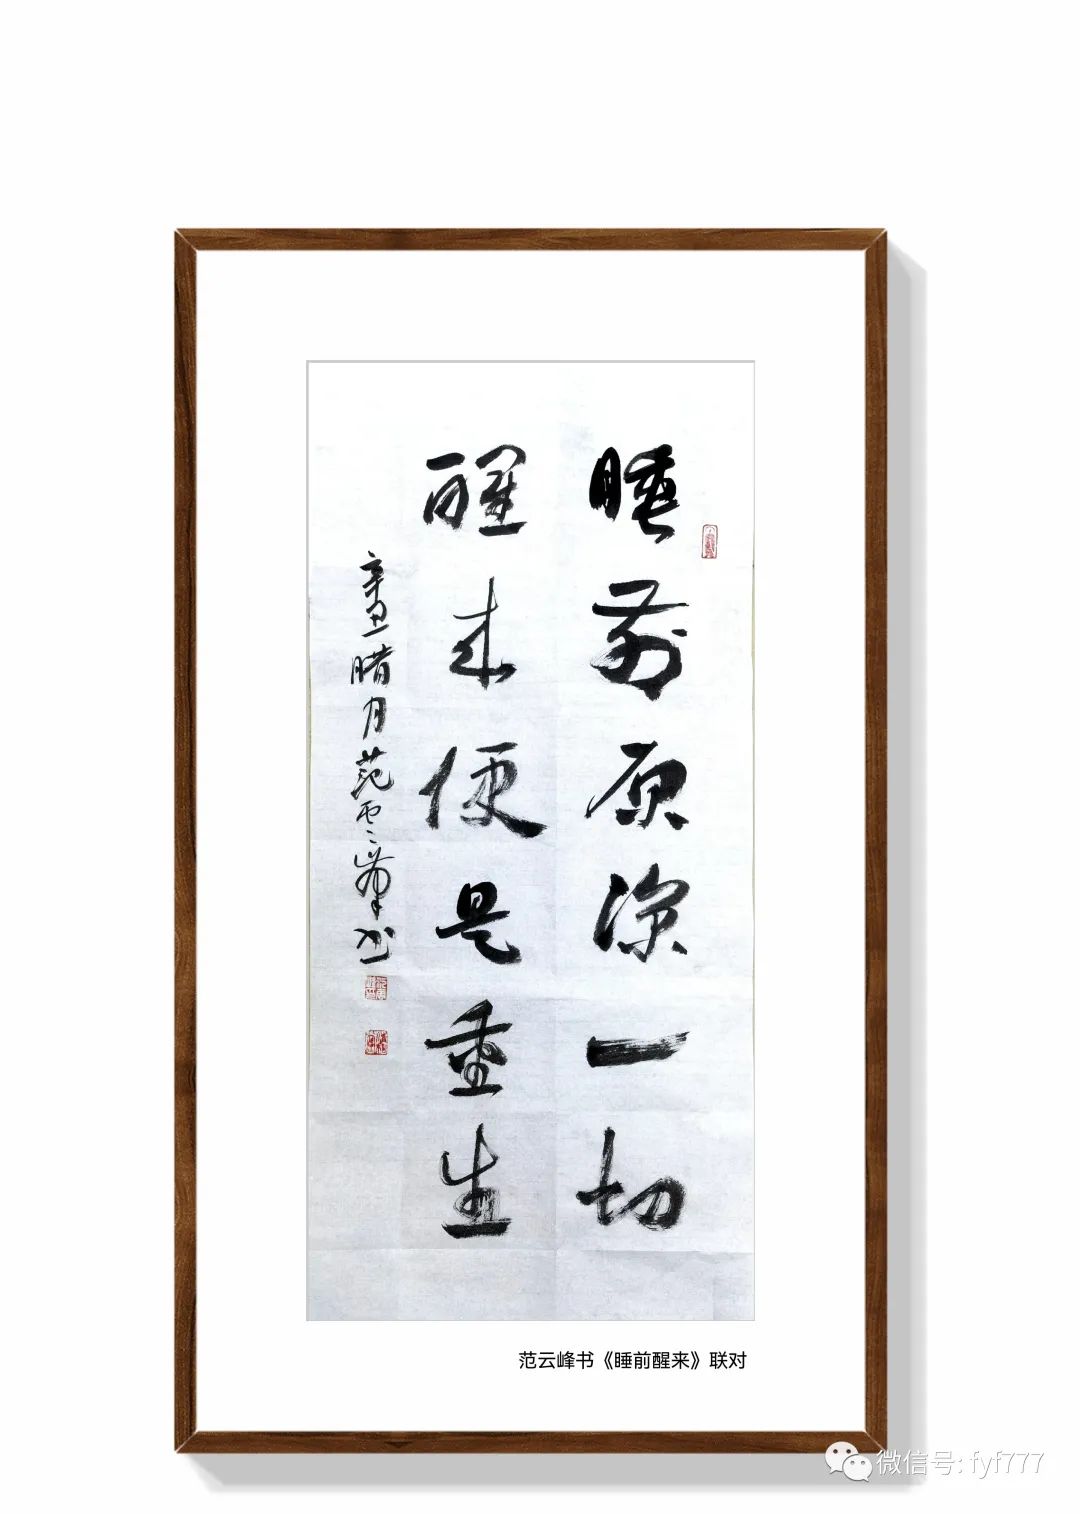 睡前原谅一切
醒来便是重生
辛丑腊月范云峰书
范云峰书《睡前醒来》联对
微信号: fyf777